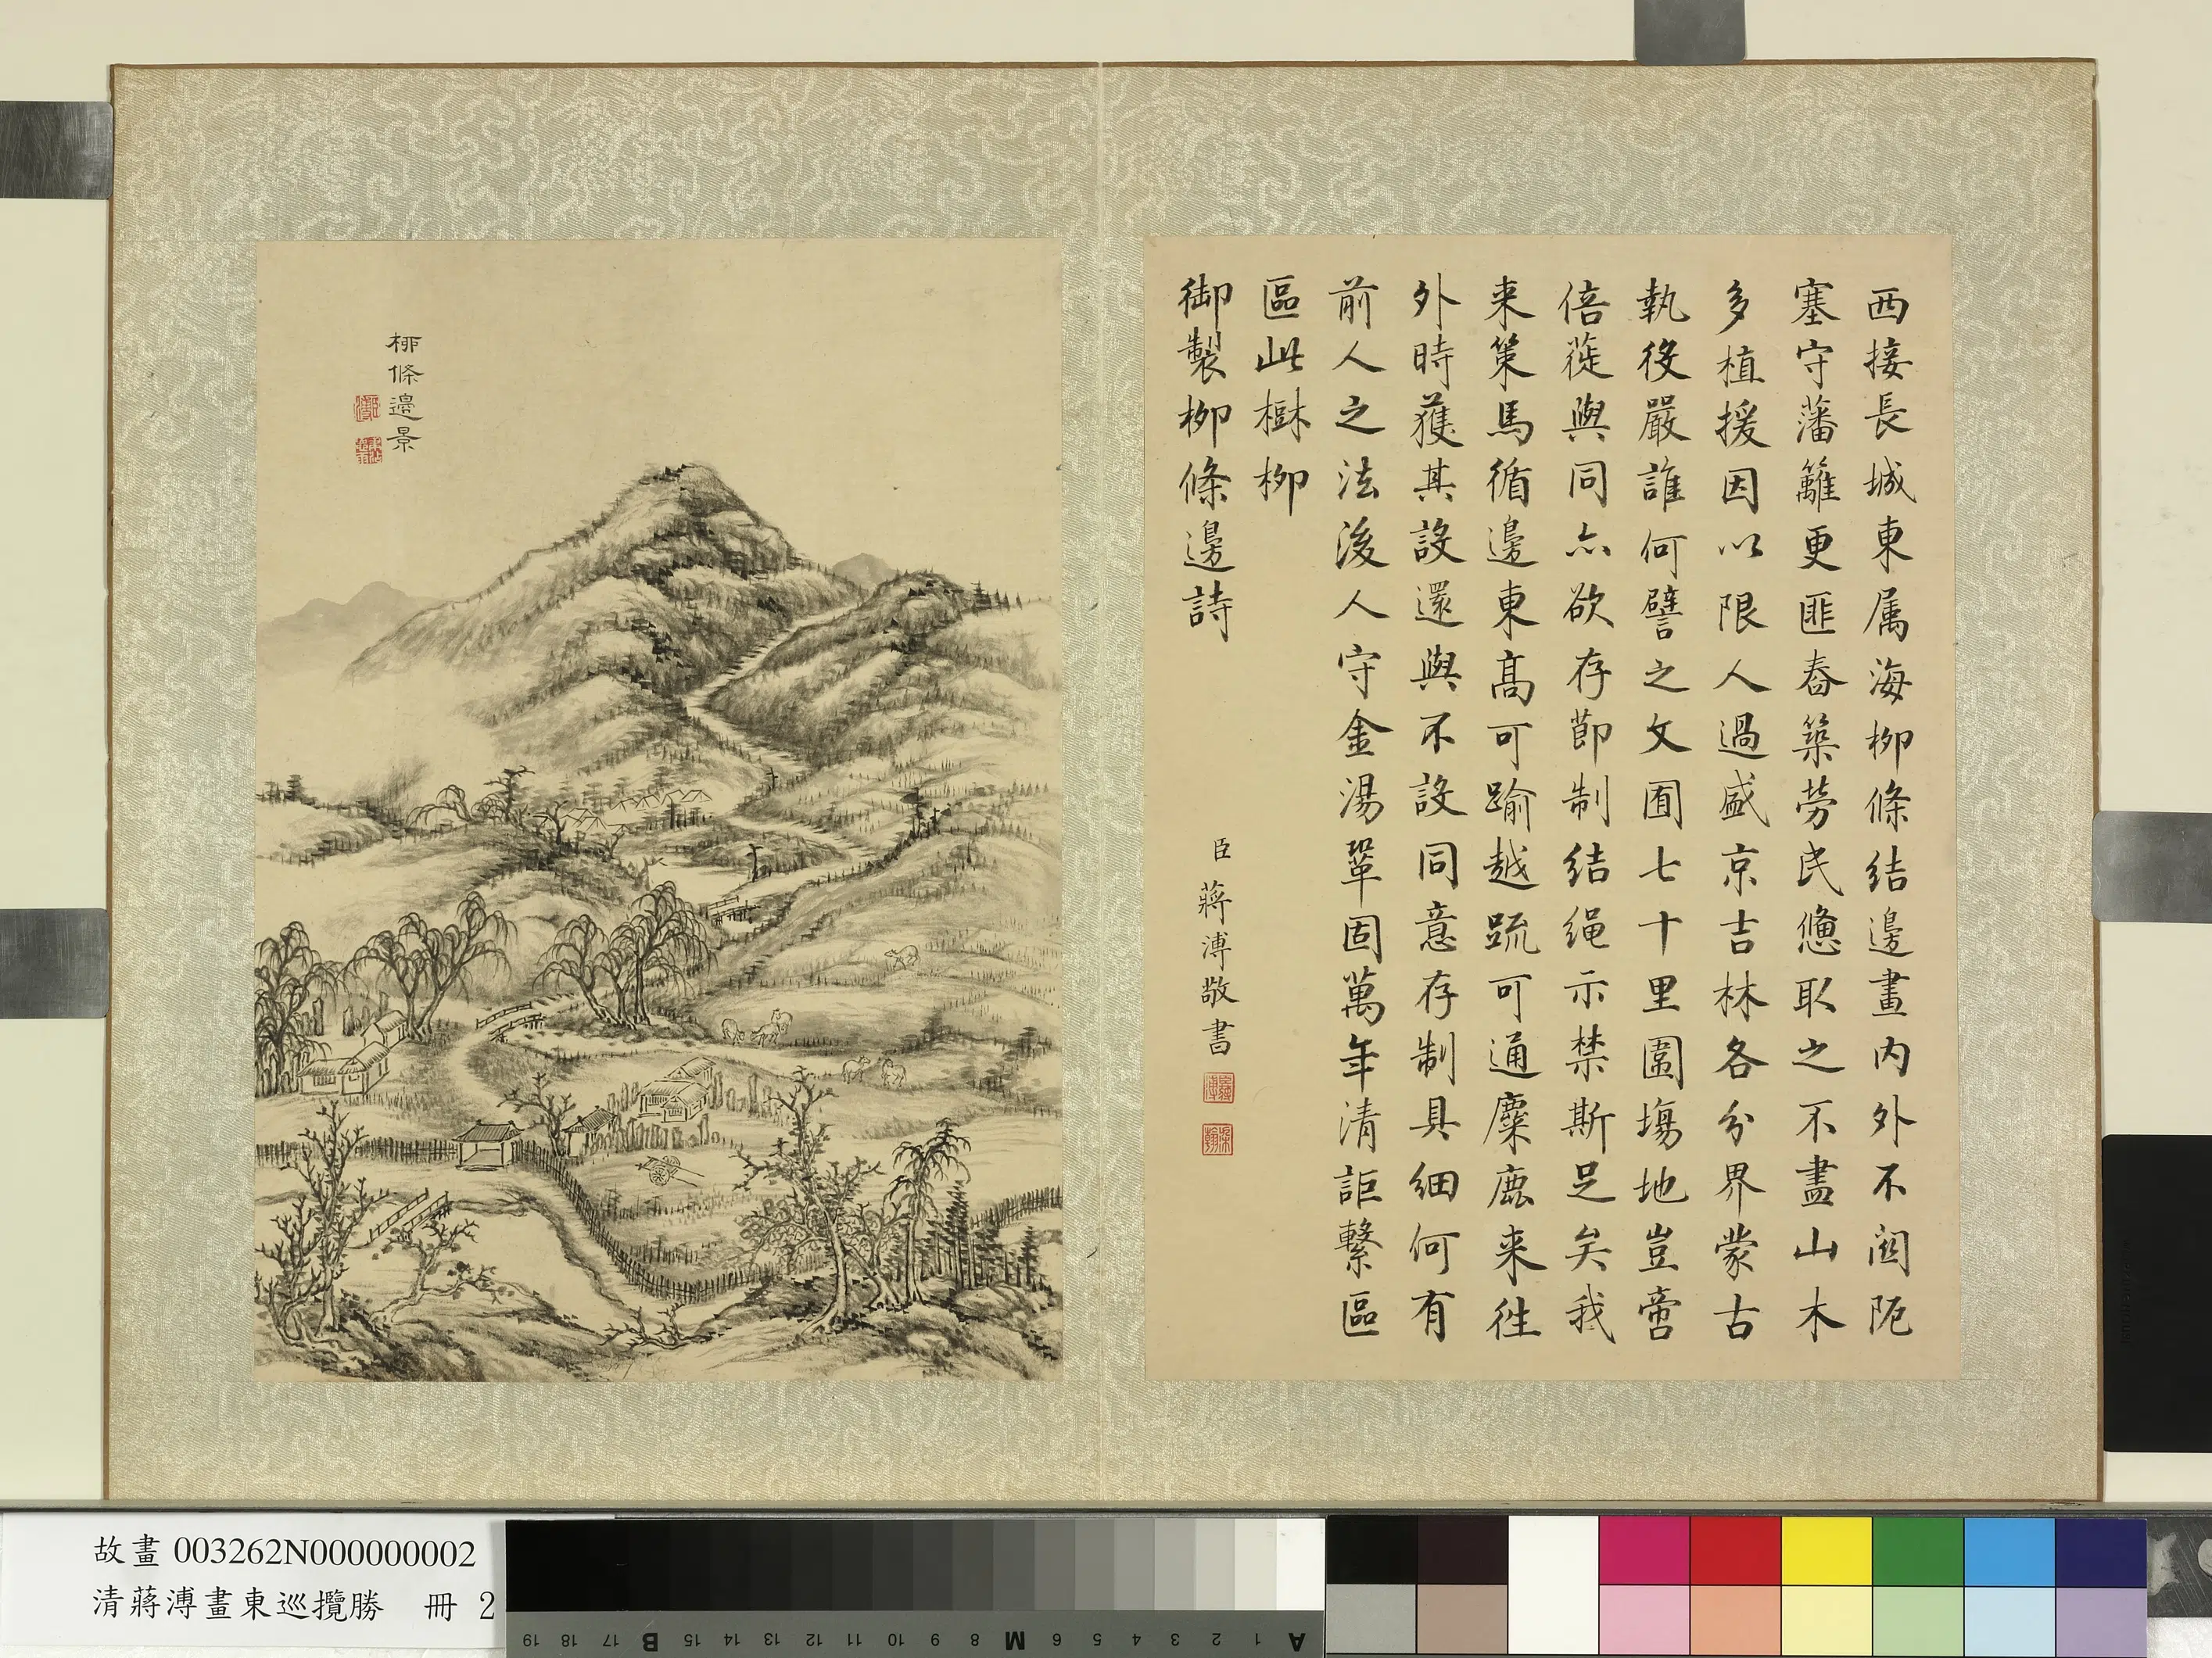 西接長城東属海柳條結邊畫内外不関阨
塞守藩籬更匪舂築勞民憊取之不盡山木
多植援因以限人過盛京吉林各分界蒙古
執役嚴誰何譬之文囿七十里圍場地豈啻
倍蓰與同亦欲存節制結繩示禁斯足矣我
来策馬循邊東高可踰越疏可通麋鹿来往
外時獲其設還與不設同意存制具細何有
前人之法後人守金湯鞏固萬年清詎繫區
區此樹柳
御製柳條邊詩
臣蔣溥敬書
柳條邊景
故畫 003262N000000002
清蔣溥畫東巡攬勝 冊 2
A 1 2 3 4 5 6 M 8 9 10 11 12 13 14 15 B 17 18 19